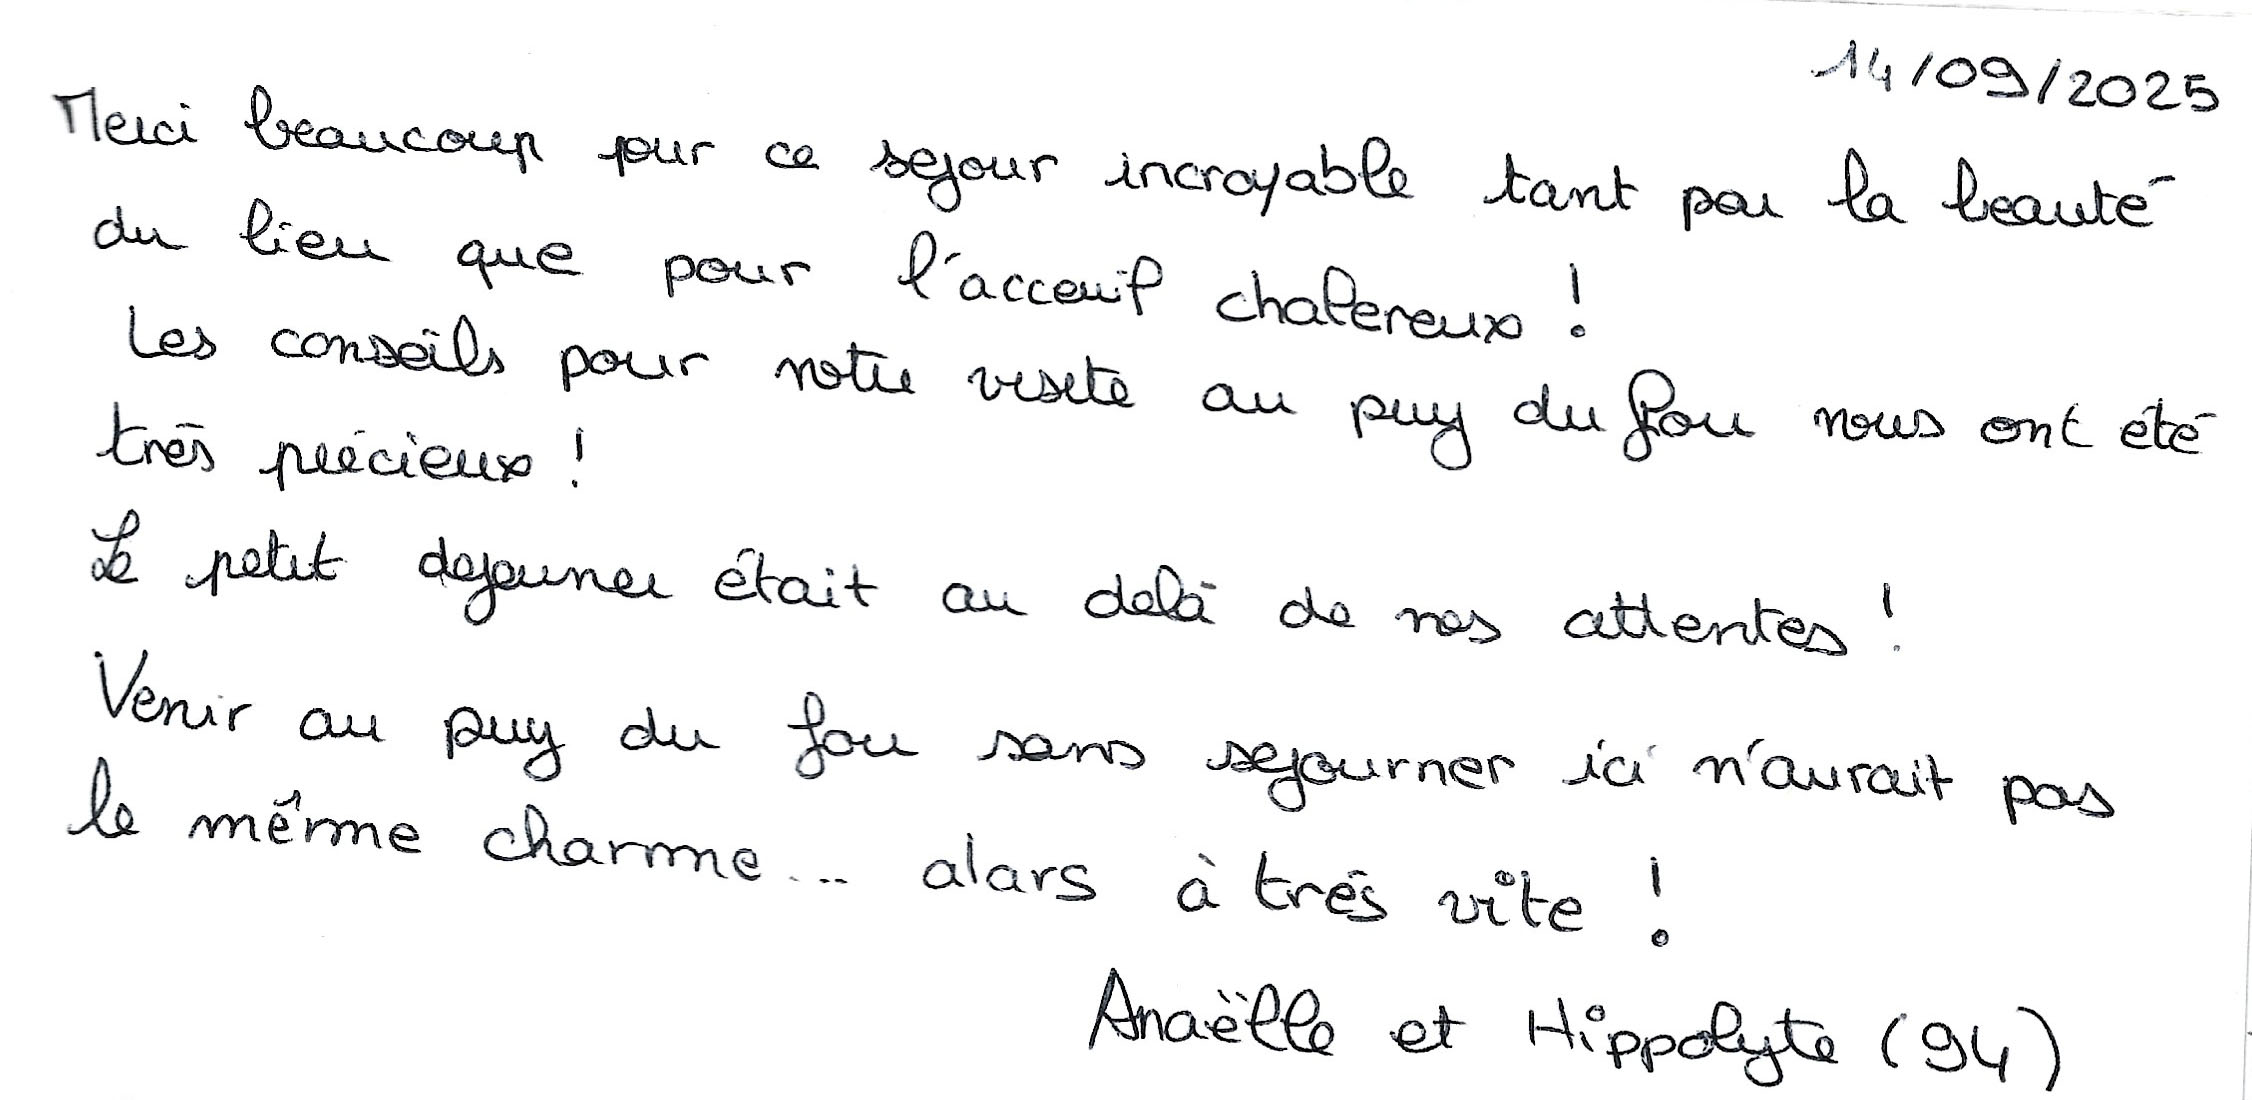 14/09/2025
Merci beaucoup pour ce sejour incroyable tant par la beauté
du lieu que pour l'acceuil chalereux !
Les conseils pour notre visite au puy du fou nous ont été
très précieux !
Le petit dejeuner était au delà de nos attentes !
Venir au puy du fou sans sejourner ici n'aurait pas
le même charme... alors à très vite !
Anaëlle et Hippolyte (94)